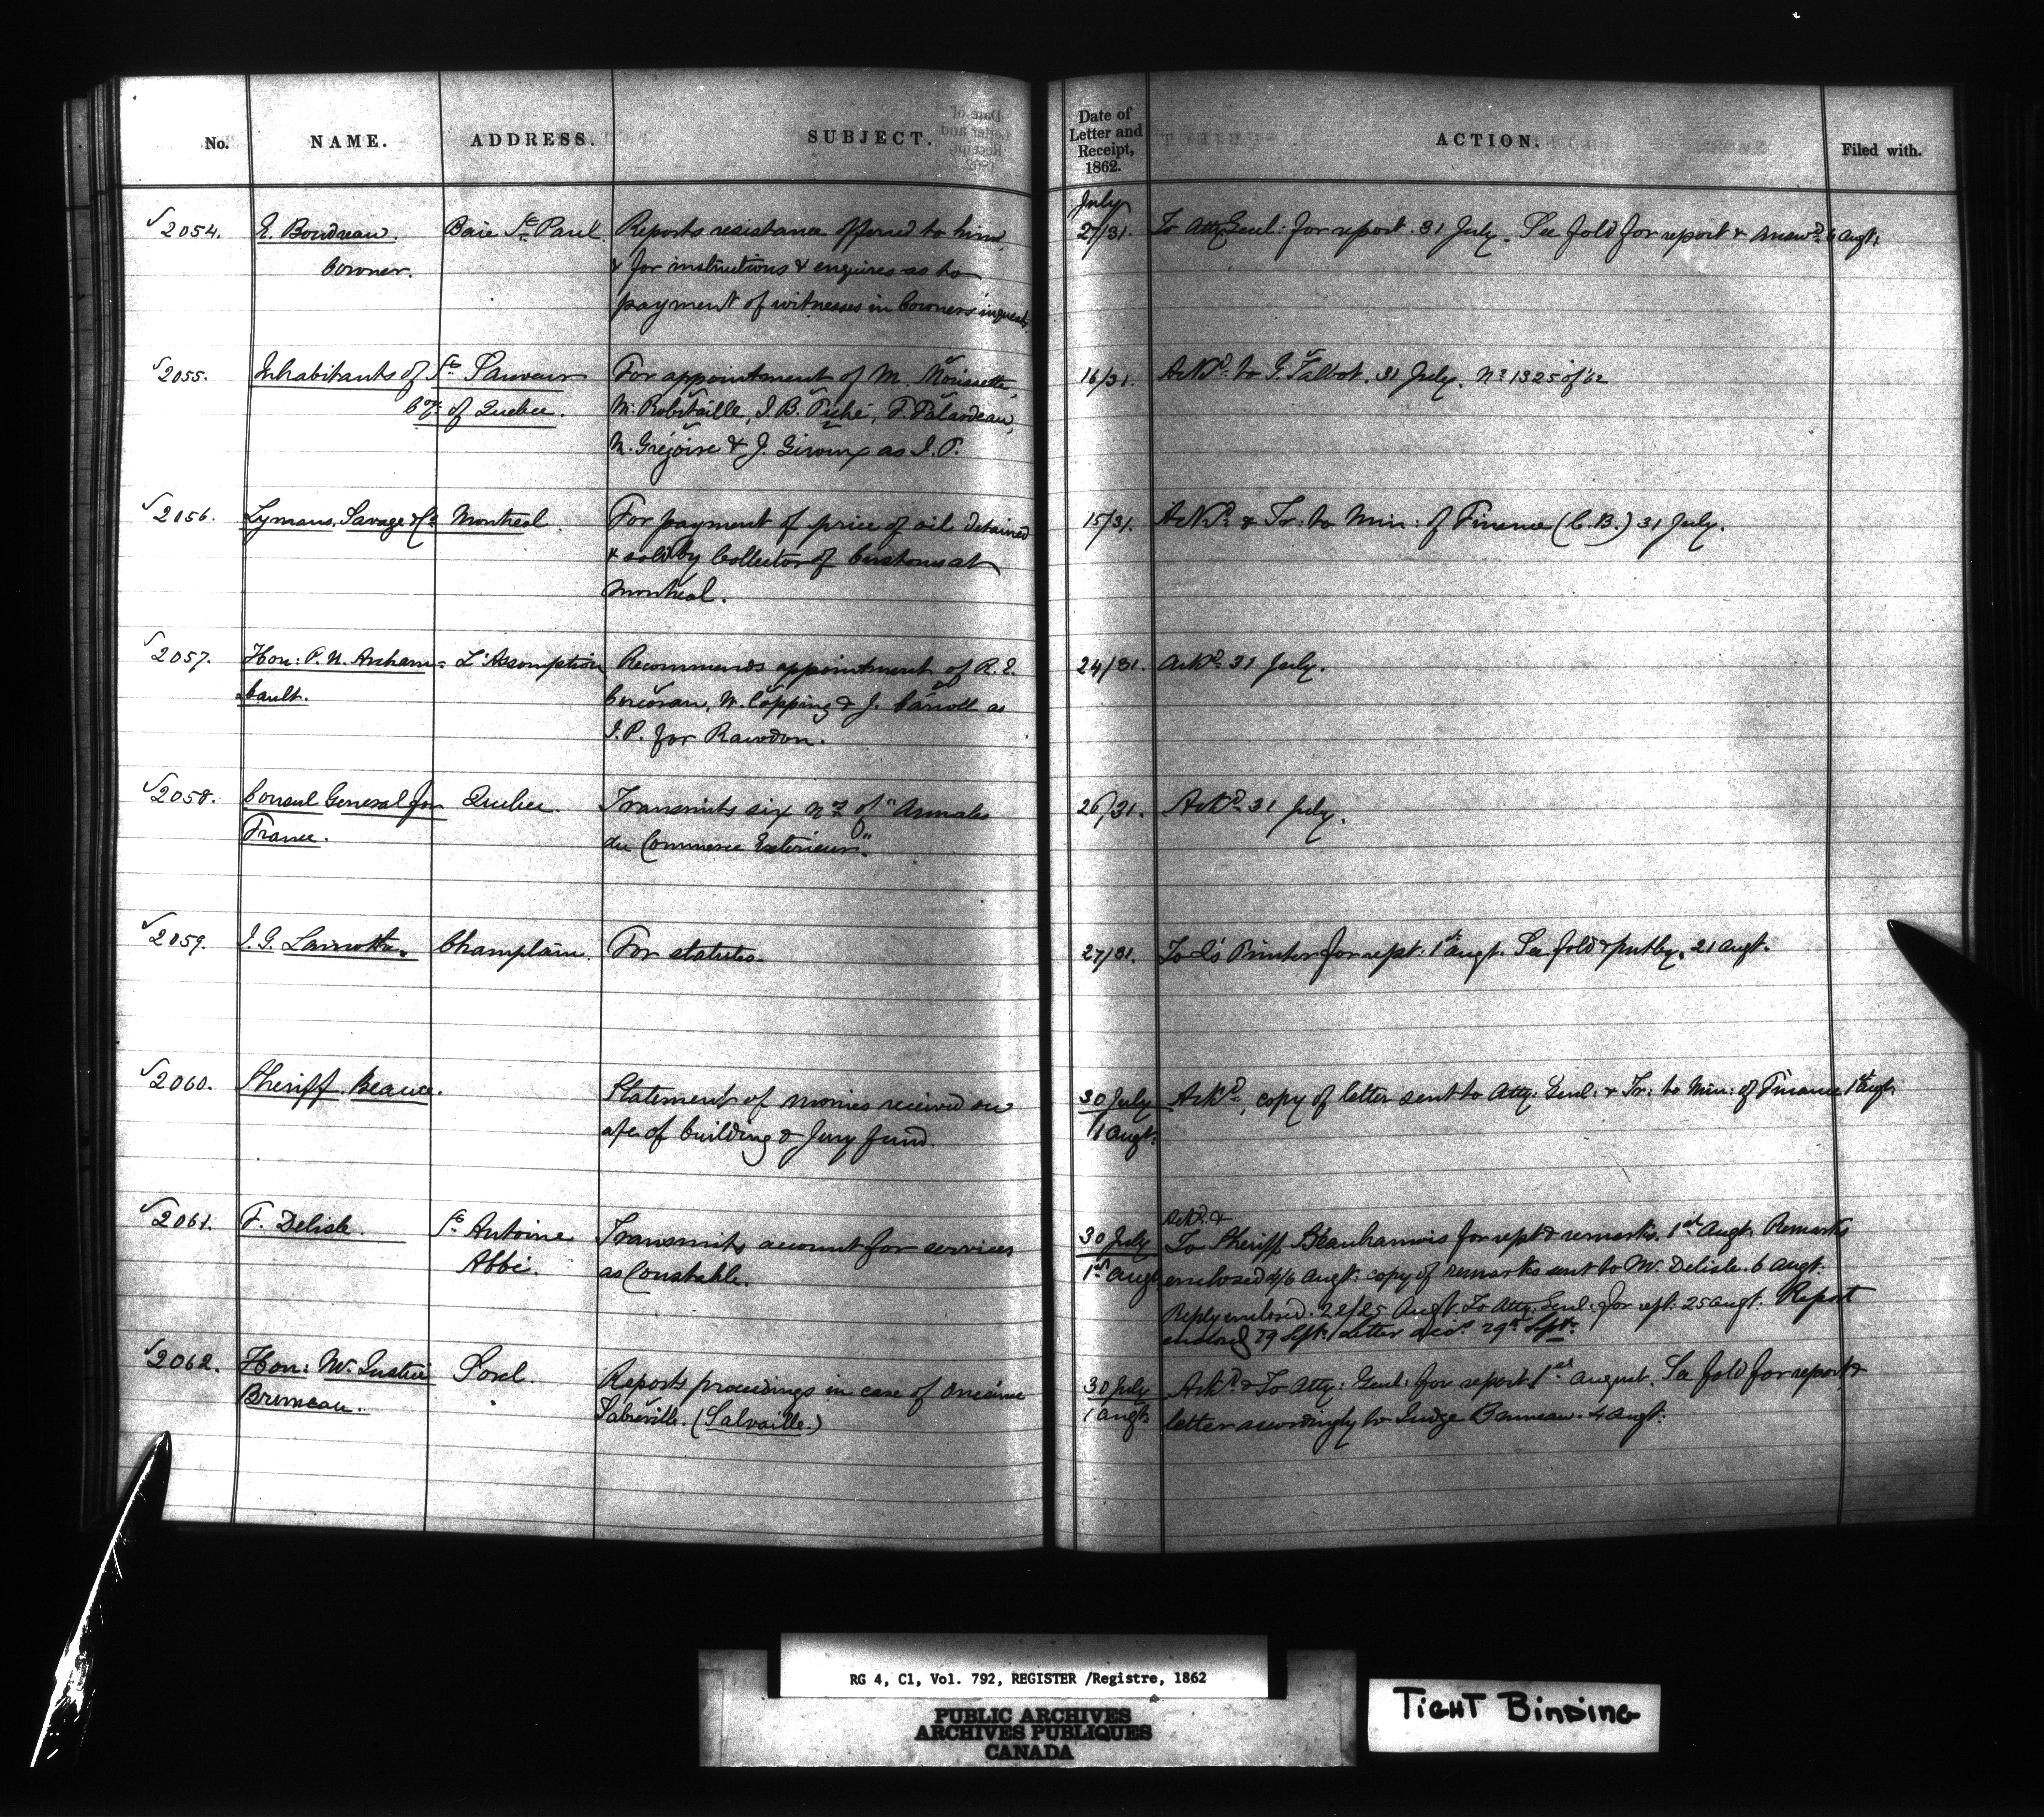 No. NAME. ADDRESS. SUBJECT. Date of Letter and Receipt, 1862. ACTION. Filed with.
July
2054. E. Boudreau Baie St Paul. Reports resistance offered to him, 2/31. To Atty Genl: for report. 31 July. See fold for report & answd 6 Augt.
Coroner. & for instructions & enquires as to
payment of witnesses in Coroners inquests.
2055. Inhabitants of St Sauveur For appointment of M. Morissette, 16/31. Ackd to G. Talbot. 31 July. No 1325 of 62
Coy of Quebec. M. Robitaille, J. B. Piché, F. Falardeau,
N. Grégoire & J. Giroux as J. P.
2056. Lymans, Savage & Co Montreal. For payment of price of oil detained 15/31. Ackd & Tr: to Min: of Finance (C. B.) 31 July.
& sold by Collector of Customs at
Montreal.
2057. Hon: P. U. Archam= L'Assomption Recommends appointment of R. E. 24/31. Ackd 31 July.
bault. Corcoran, W. Copping & J. Carroll as
J. P. for Rawdon.
2058. Consul General for Quebec. Transmits six Nos of "Annales 26/31. Ackd 31 July.
France. du Commerce Extérieur."
2059. J. G. Lamothe. Champlain. For statutes. 27/31. To Q's Printer for rept: 1st Augt. See fold & put by. 21 Augt.
2060. Sheriff Beauce. Statement of monies received on 30 July Ackd, copy of letter sent to Atty. Genl: & Tr: to Min: of Finance 1st Augt.
a/c of building & Jury fund. 1 Augt.
Ackd &
2061. F. Delisle. St Antoine Transmits account for services 30 July To Sheriff Beauharnois for rept & remarks. 1st Augt. Remarks
Abbé. as Constable. 1st Augt enclosed 4/6 Augt: copy of remarks sent to Mr. Delisle. 6 Augt.
Reply enclosed. 22/25 Augt. To Atty. Genl: for rept: 25 Augt. Report
enclosed 29 Sept. Letter 29th Sept.
2062. Hon: Mr. Justice Sorel. Reports proceedings in case of Onesime 30 July Ackd & To Atty: Genl: for report 1st August. See fold for report &
Bruneau. Sabreville. (Salvaille.) 1 Augt. letter accordingly to Judge Bruneau. 4 Augt.
RG 4, C1, Vol. 792, REGISTER /Registre, 1862
PUBLIC ARCHIVES
ARCHIVES PUBLIQUES
CANADA
TIGHT BINDING